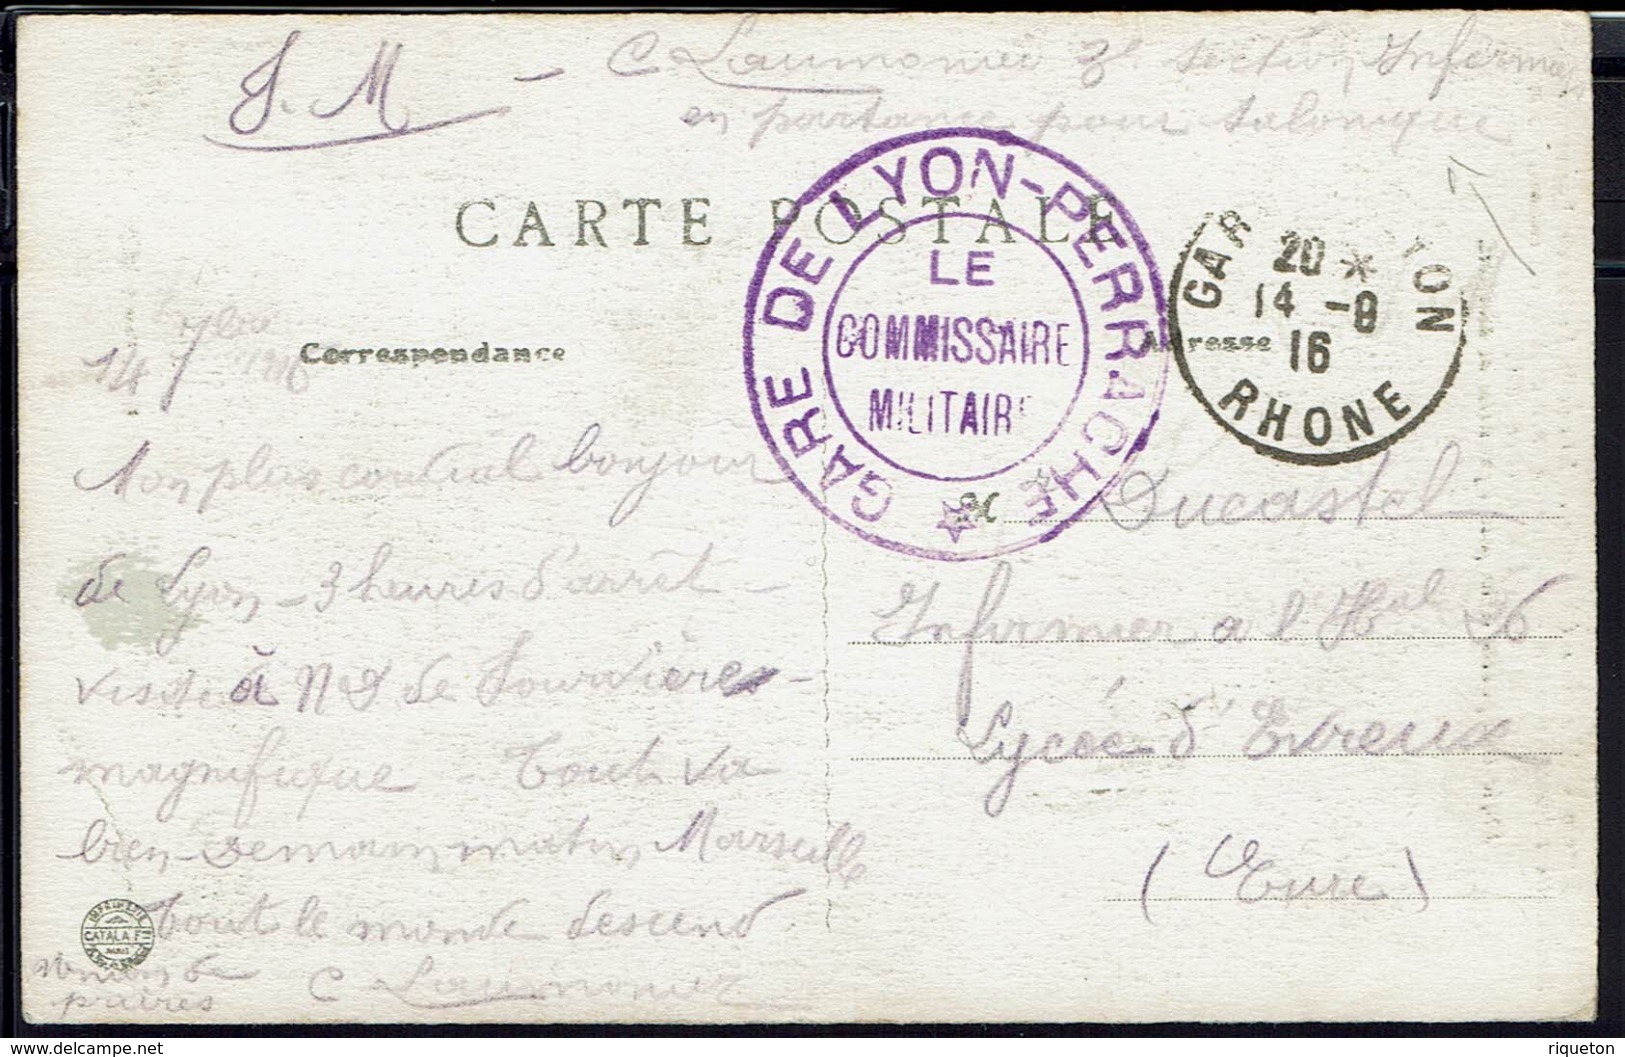 F.M. – C Laumonier 3e section Infirmiers
en partance pour Salonique
CARTE POSTALE
GARE DE LYON-PERRACHE
LE
COMMISSAIRE
MILITAIRE
GAR YON
20 *
14 -9
16
RHONE
Correspondance
Adresse
14 7bre 1916
Mon plus cordial bonjour
de Lyon – 3 heures d'arret –
visite à N D de Fourvières –
magnifique – Tout va
bien Demain matin Marseille
Tout le monde descend
C Laumonier
Union de
prières
M Ducastel
Infirmier a l'Hal 26
Lycée d'Evreux
(Eure)
IMPRIMERIE
CATALA F
PARIS
www.delcampe.net
riqueton